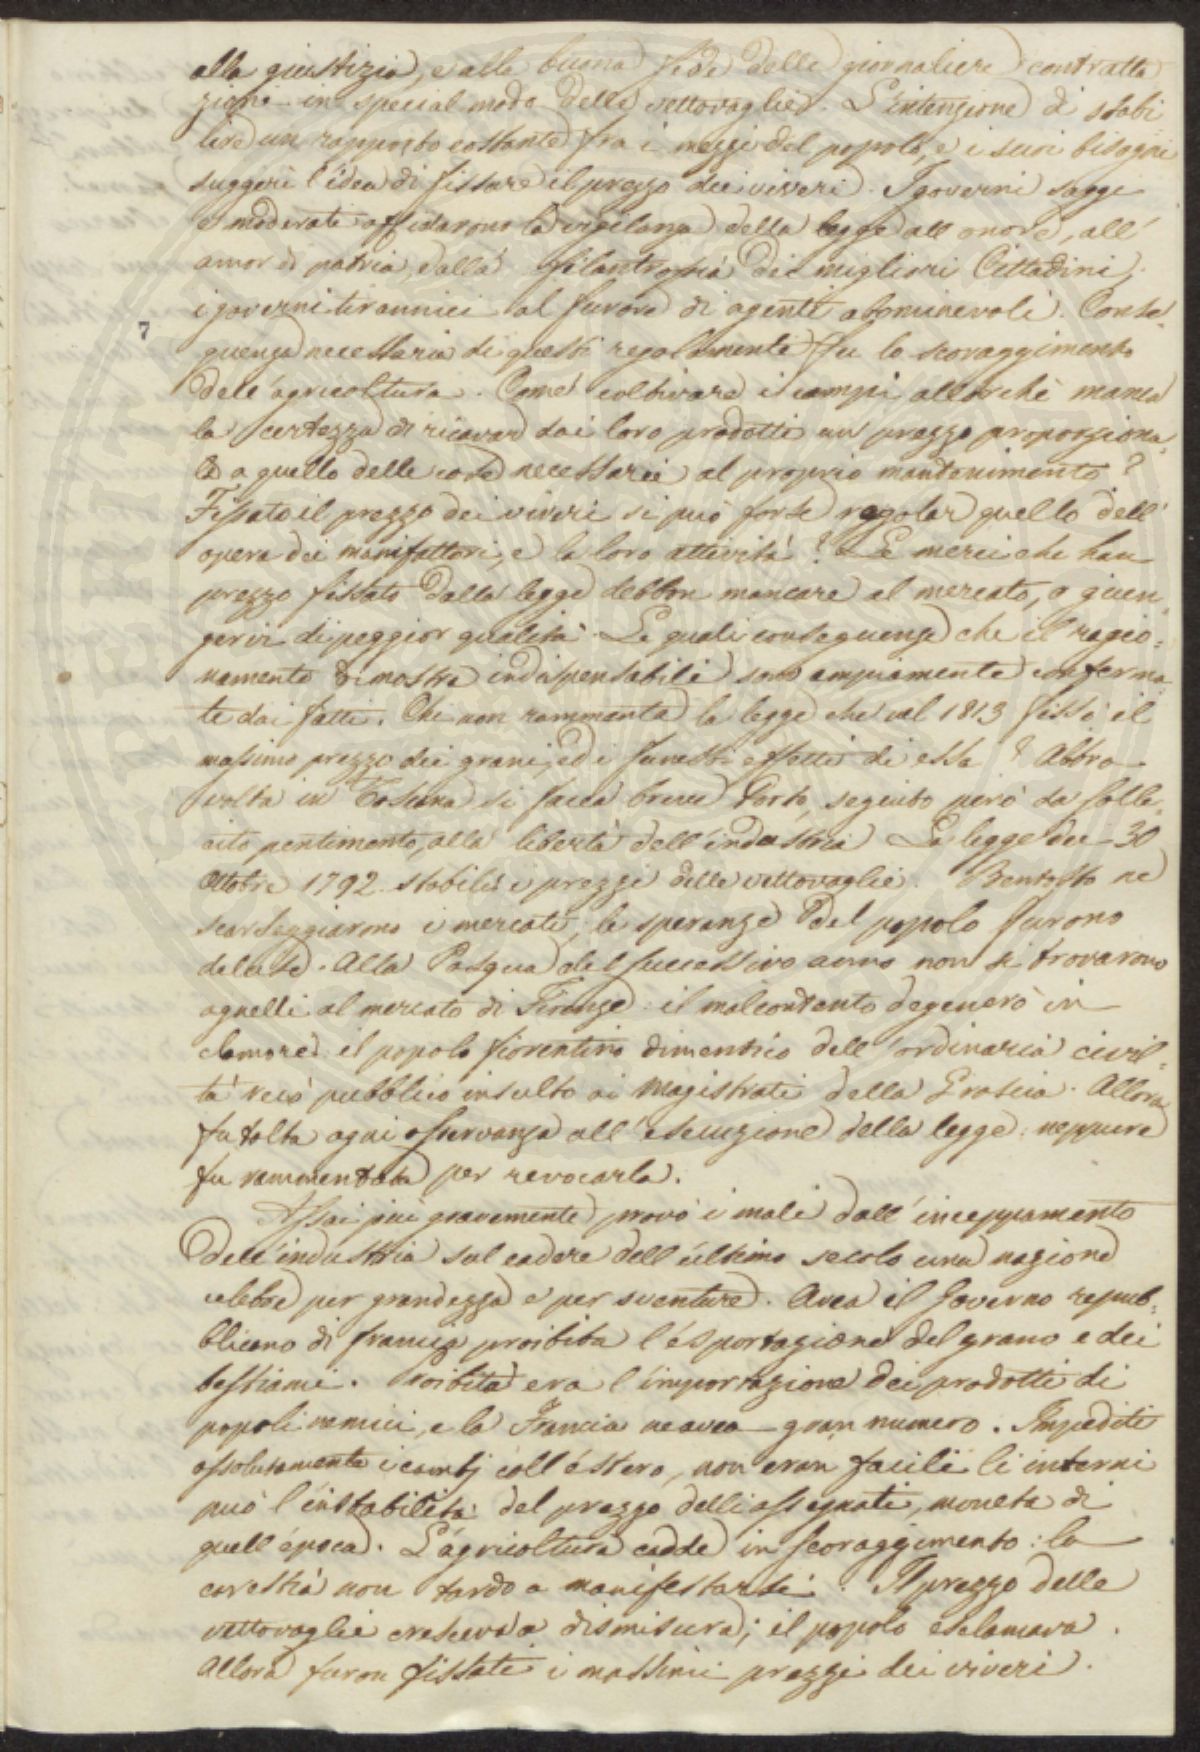 alla giustizia, e alla buona fede delle giornaliere contratta
zioni in special modo delle vettovaglie. L'intenzione di stabi
lire un rapporto costante fra i mezzi del popolo, e i suoi bisogni
suggerì l'idea di fissare il prezzo dei viveri. I governi saggi
e moderati affidarono la vigilanza della legge all'onore, all'
amor di patria, dalla filantropia dei migliori Cittadini,
i governi tirannici al furore di agenti abominevoli. Conse=
7
guenza necessaria di questi regolamenti fu lo scoraggimento
dell'agricoltura. Come coltivare i campi allorchè manca
la certezza di ricavar dai loro prodotti un prezzo proporziona=
to a quello delle cose necessarie al proprio mantenimento?
Fissato il prezzo dei viveri si può forse regolar quello dell'
opera dei manifattori, e la loro attività? Le merci che han
prezzo fissato dalla legge debbon mancare al mercato, o giun=
gervi di peggior qualità. Le quali conseguenze che il ragio=
namento dimostra indispensabili sono ampiamente conferma
te dai fatti. Chi non rammenta la legge che nel 1813 fissò il
massimo prezzo dei grani, ed i funesti effetti di essa? Altra
volta in Toscana si facea breve torto, seguito però da solle=
cito pentimento, alla libertà dell'industria. La legge dei 30
Ottobre 1792. stabilì i prezzi delle vettovaglie. Bentosto ne
scarseggiarono i mercati, le speranze del popolo furono
deluse. Alla Pasqua del successivo anno non si trovarono
agnelli al mercato di Firenze: il malcontento degenerò in
clamore: il popolo fiorentino dimentico dell'ordinaria civil=
tà recò pubblico insulto ai Magistrati della Grascia. Allora
fu tolta ogni osservanza all'esecuzione della legge: neppure
fu rammentata per revocarla.
Assai più gravemente provò i mali dall'inceppamento
dell'industria sul cadere dell'ultimo secolo una nazione
celebre per grandezza e per sventure. Avea il Governo repub=
blicano di francia proibita l'esportazione del grano e dei
bestiami. Proibita era l'importazione dei prodotti di
popoli nemici, e la Francia ne avea gran numero. Impediti
assolutamente i cambj coll'estero, non eran facili li interni
può l'instabilità del prezzo delli assegnati, moneta di
quell'epoca. L'agricoltura cadde in scoraggimento: la
carestia non tardò a manifestarsi. Il prezzo delle
vettovaglie cresceva a dismisura; il popolo esclamava.
Allora furon fissati i massimi prezzi dei viveri.